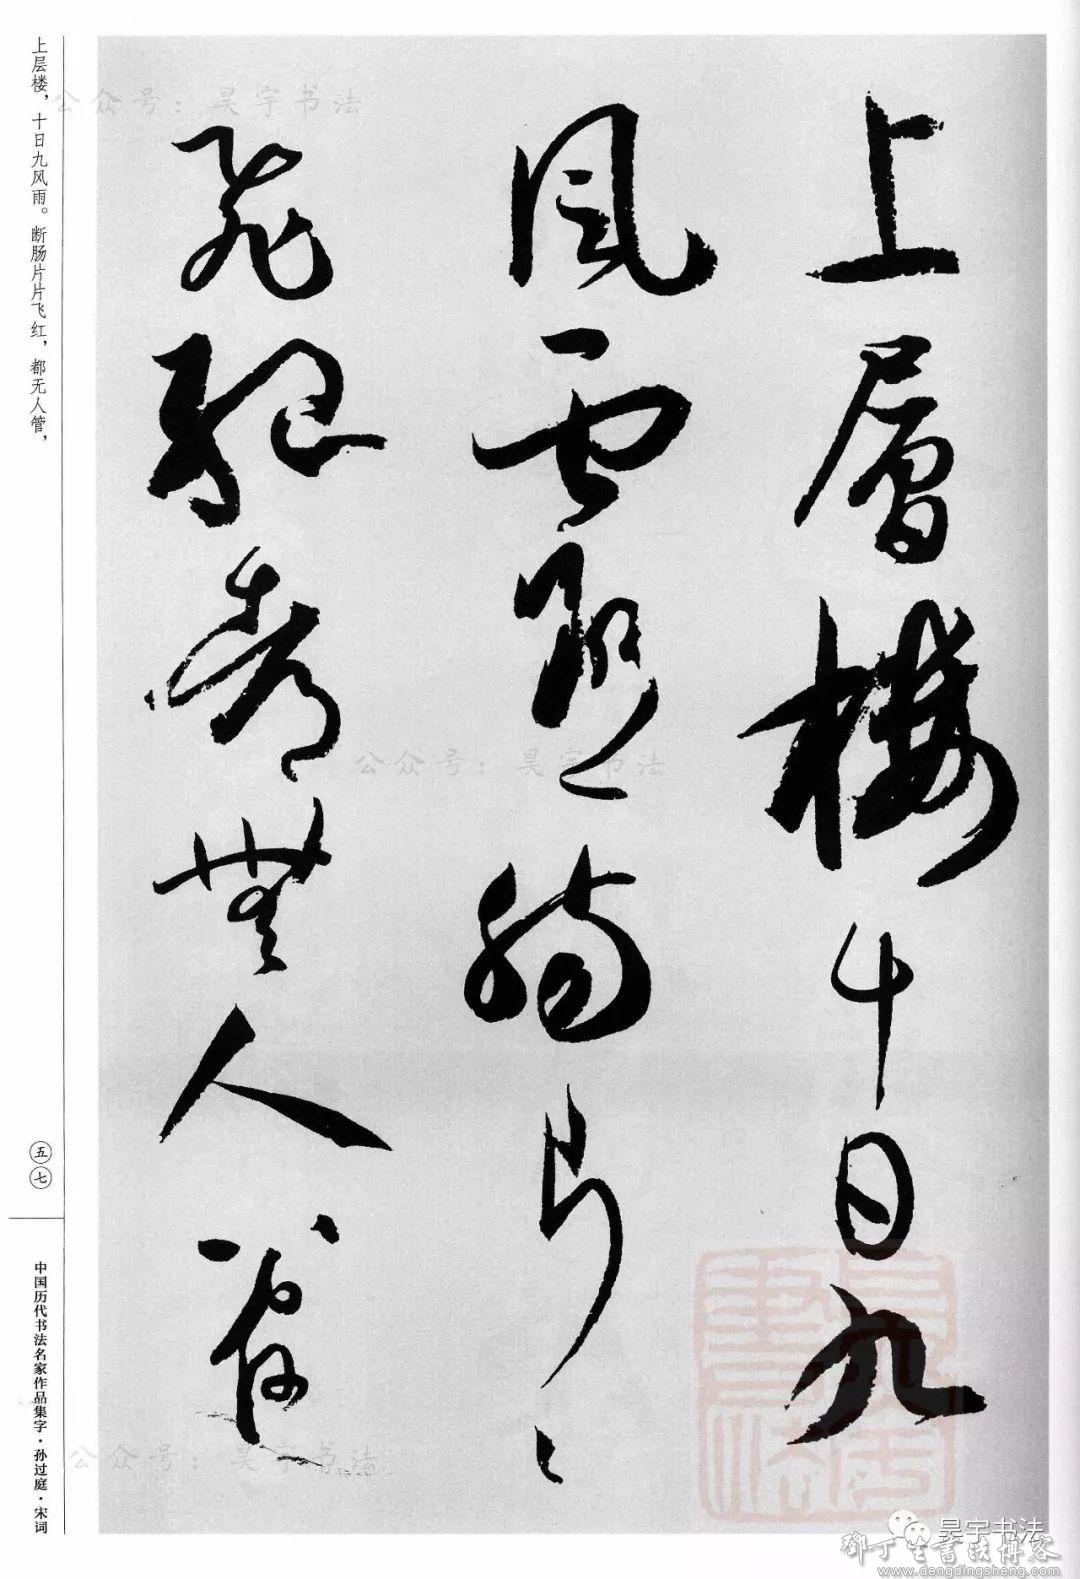 上層樓十日九
風雨斷腸片片
飛紅都無人管
上层楼，十日九风雨。断肠片片飞红，都无人管，
五七
中国历代书法名家作品集字·孙过庭·宋词
公众号：昊宇书法
公众号：昊宇书法
公众号：昊宇书法
昊宇书法
鄧丁生書法博客
www.dengdingsheng.com